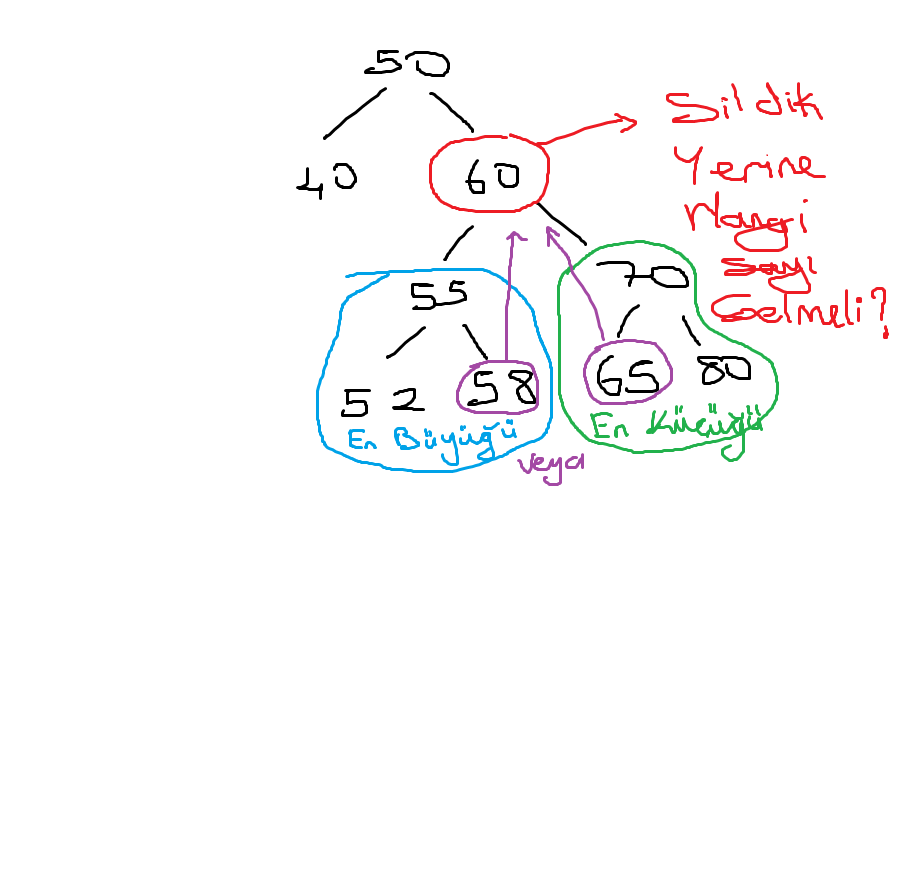 50
40
60
Sildik
Yerine
Hangi
Sayı
Gelmeli?
55
70
52
58
65
80
En Büyüğü
En Küçüğü
veya